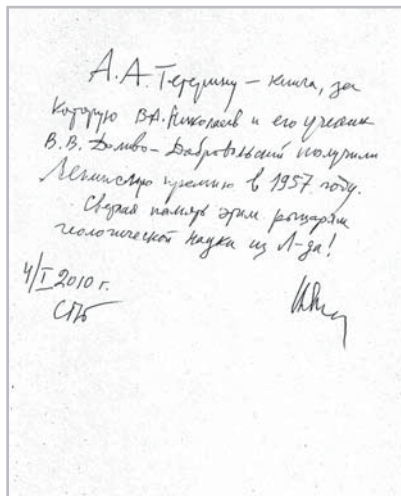 А.А. Тетерину – книга, за
которую В.А. Николаев и его ученик
В.В. Доливо-Добровольский получили
Ленинскую премию в 1957 году.
Светлая память этим рыцарям
геологической науки из Л-да!
4/I 2010 г.
СПб